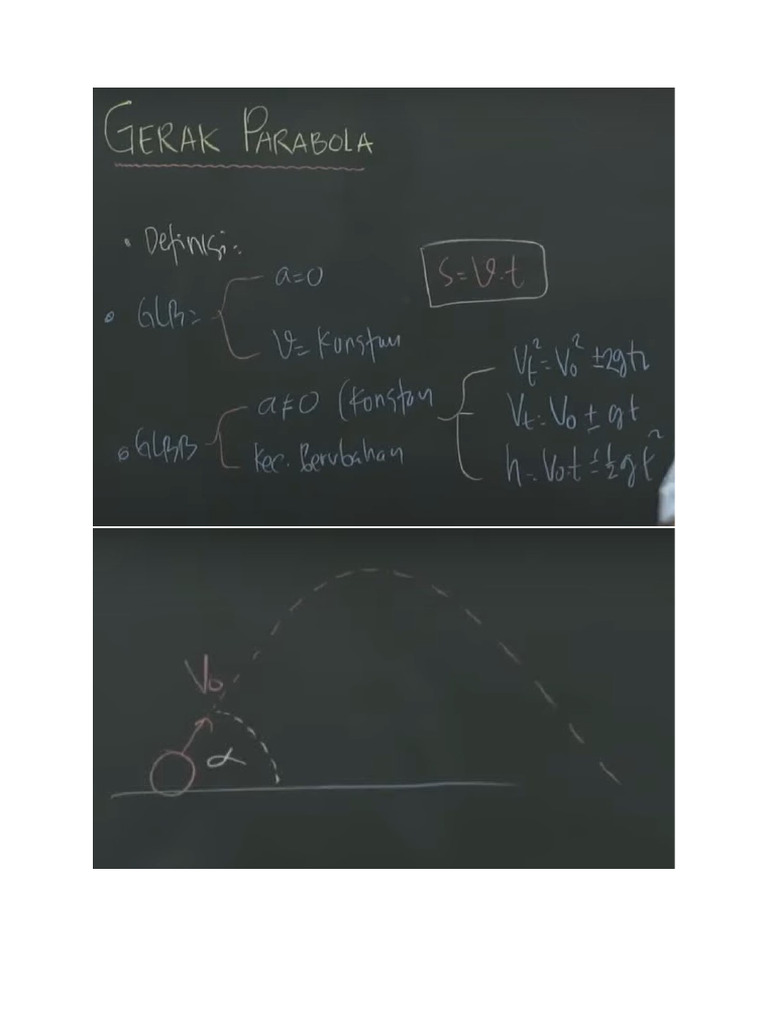 GERAK PARABOLA
• Definisi:
S = V.t
• GLB =
a = 0
V = Konstan
• GLBB
a ≠ 0 (Konstan
Kec. Berubahan
Vt² = Vo² ± 2gh
Vt = Vo ± gt
h = Vo.t ± ½ gt²
Vo
α